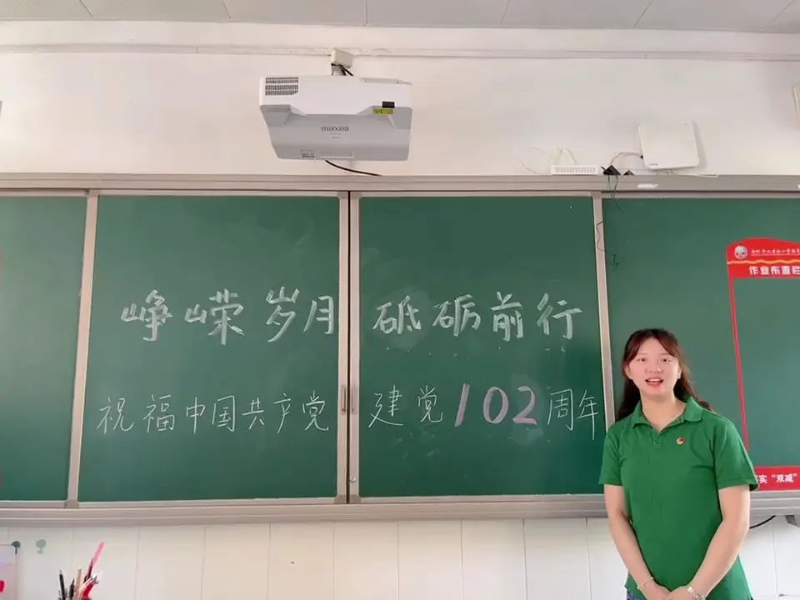 maxell
峥嵘岁月 砥砺前行
祝福中国共产党 建党102周年
作业布置栏
实“双减”